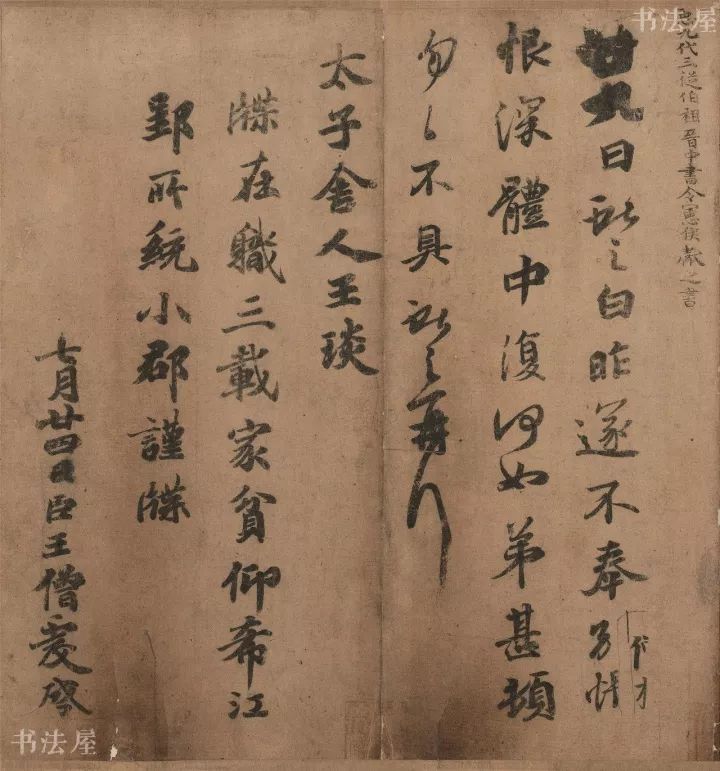 书法屋
臣九代三從伯祖晉中書令憲侯獻之書
廿九日獻之白昨遂不奉別悵
恨深體中復何如弟甚頓
匆匆不具獻之再拜
太子舍人王琰
牒在職三載家貧仰希江
郢所統小郡謹牒
七月廿四日臣王僧虔啓
书法屋